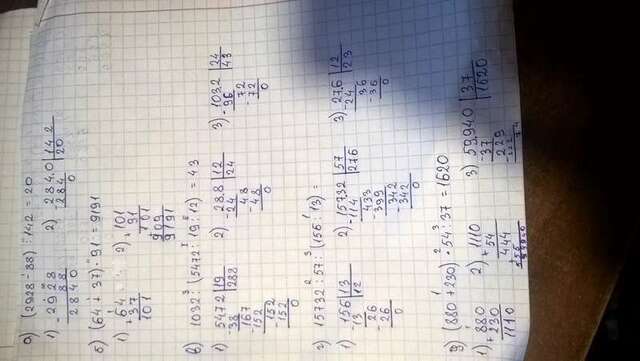 а) (2928 - 88) : 142 = 20
1) - 2928
88
2840
2) 2840 | 142
- 284 | 20
0
б) (64 + 37) · 91 = 9191
1) + 64
37
101
2) × 101
91
101
909
9191
в) 1032 : (5472 : 19 : 12) = 43
1) 5472 | 19
- 38 | 288
167
- 152
152
- 152
0
2) 288 | 12
- 24 | 24
48
- 48
0
3) 1032 | 24
- 96 | 43
72
- 72
0
г) 15732 : 57 : (156 : 13) =
1) 156 | 13
- 13 | 12
26
- 26
0
2) 15732 | 57
- 114 | 276
433
- 399
342
- 342
0
3) 276 | 12
- 24 | 23
36
- 36
0
(880 + 230) · 54 : 37 = 1620
1) + 880
230
1110
2) 1110
54
444
3) 59940 | 37
- 37 | 1620
229